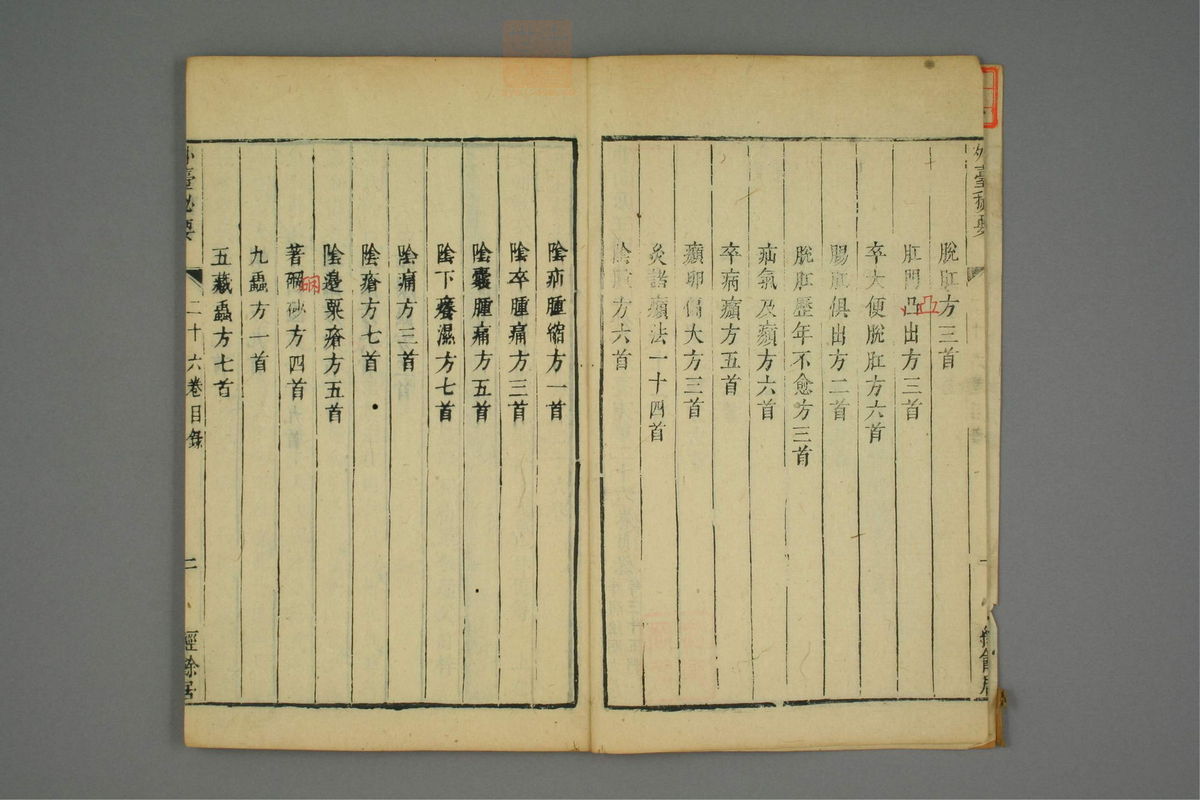 外臺秘要
脫肛方三首
肛門凸出方三首
凸
卒大便脫肛方六首
腸肛俱出方二首
脫肛歷年不愈方三首
疝氣及㿗方六首
卒病㿗方五首
㿗卵偏大方三首
灸諸㿗法一十四首
陰㿗方六首
陰疝腫縮方一首
陰卒腫痛方三首
陰囊腫痛方五首
陰下癢濕方七首
陰痛方三首
陰瘡方七首
陰邊粟瘡方五首
著硇砂方四首
硇
九蟲方一首
五藏蟲方七首
外臺秘要
二十六卷目錄
二
經餘居